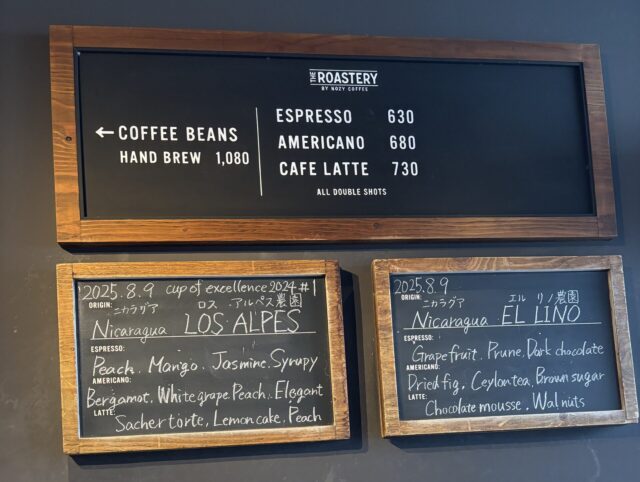 THE ROASTERY
BY NOZY COFFEE
←COFFEE BEANS
HAND BREW 1,080
ESPRESSO 630
AMERICANO 680
CAFE LATTE 730
ALL DOUBLE SHOTS
2025.8.9 cup of excellence 2024 #1
ORIGIN:
ニカラグア ロス アルペス農園
Nicaragua LOS ALPES
ESPRESSO:
Peach. Mango. Jasmine. Syrupy
AMERICANO:
Bergamot. White grape. Peach. Elegant
LATTE:
Sachertorte. Lemon cake. Peach
2025.8.9
ORIGIN:
ニカラグア エル リノ農園
Nicaragua EL LINO
ESPRESSO:
Grapefruit. Prune. Dark chocolate
AMERICANO:
Dried fig. Ceylon tea. Brown sugar
LATTE:
Chocolate mousse. Walnuts